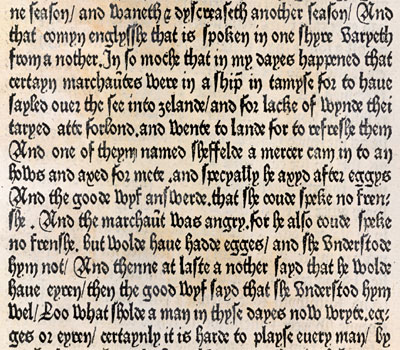 ne season/ and waneth & dyscreaseth another season/ And
that comyn englysshe that is spoken in one shyre varyeth
from a nother. In so moche that in my dayes happened that
certayn marchaūtes were in a ship in tamyse for to haue
sayled ouer the see into zelande/ and for lacke of wynde thei
taryed atte forlond. and wente to lande for to refreshe them
And one of theym named sheffelde a mercer cam in to an
hows and axed for mete. and specyally he axyd after eggys
And the goode wyf answerde. that she coude speke no fren-
she. And the marchaūt was angry. for he also coude speke
no frenshe. but wolde haue hadde egges/ and she vnderstode
hym not/ And thenne at laste a nother sayd that he wolde
haue eyren/ then the good wyf sayd that she vnderstod hym
wel/ Loo what sholde a man in thyse dayes now wryte. eg-
ges or eyren/ certaynly it is harde to playse euery man/ by